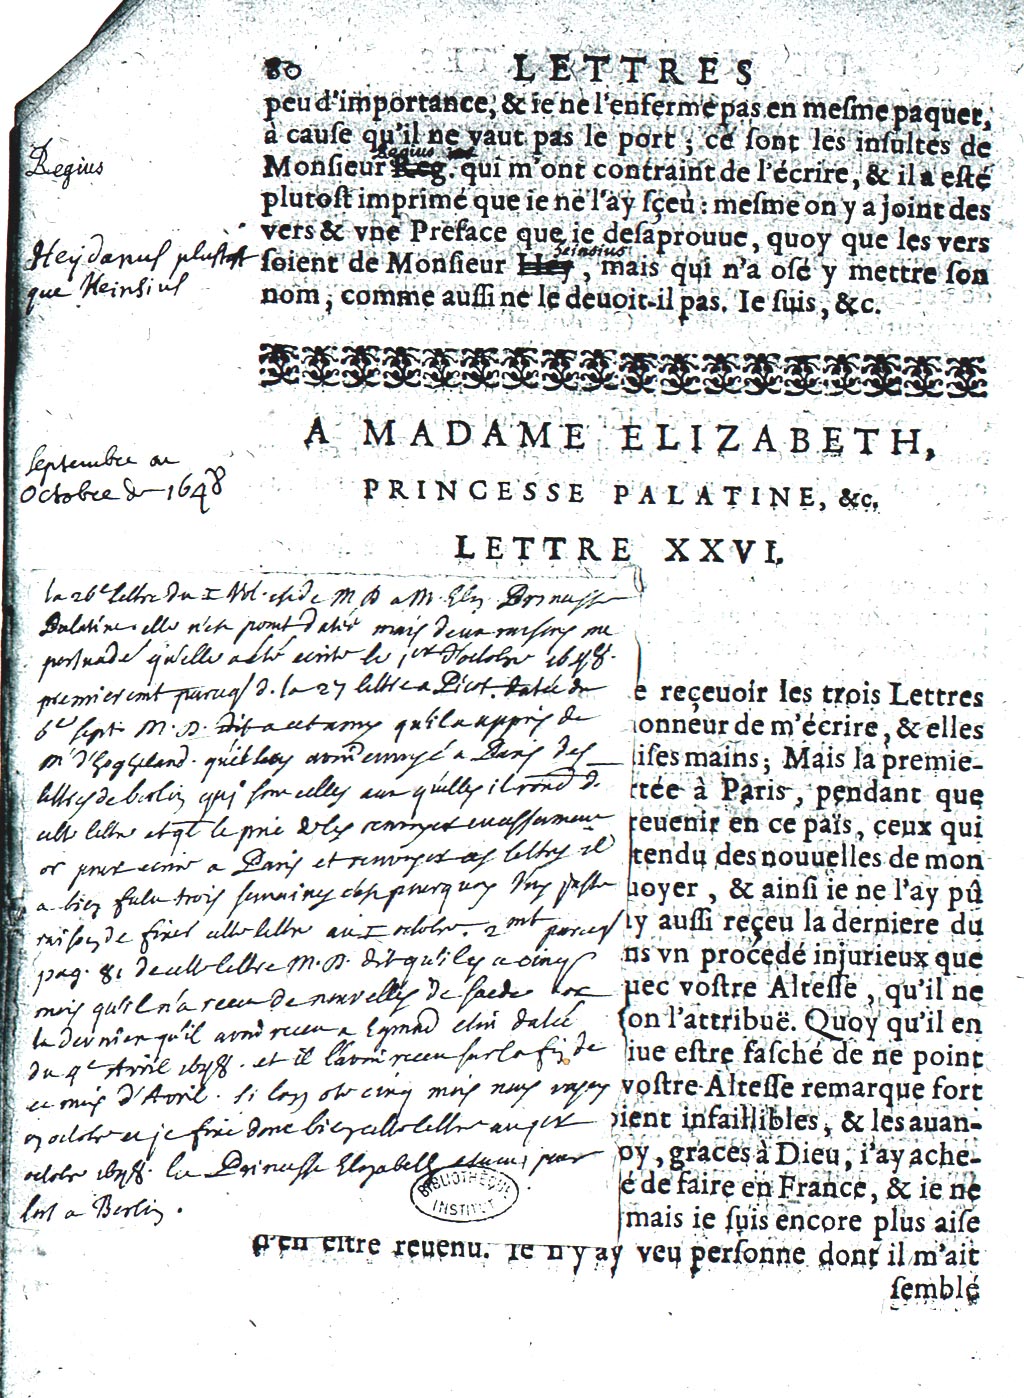 80 LETTRES
peu d'importance, & ie ne l'enferme pas en meſme paquet,
à cauſe qu'il ne vaut pas le port ; ce ſont les inſultes de
Regius
Regius
Monſieur Reg. qui m'ont contraint de l'écrire, & il a eſté
plutoſt imprimé que ie ne l'ay ſçeu : meſme on y a joint des
vers & vne Preface que ie deſaprouue, quoy que les vers
Heydanus plustost
que Heinsius
heinsius
ſoient de Monſieur Hey, mais qui n'a oſé y mettre ſon
nom, comme auſſi ne le deuoit-il pas. Ie ſuis, &c.
A MADAME ELIZABETH,
Septembre ou
Octobre de 1648
PRINCESSE PALATINE, &c.
LETTRE XXVI.
la 26e lettre du I Vol. est de M D a M. Eliz. Princesse
Palatine. elle n'est point datée mais deux raisons me
persuadent qu'elle a été écrite le 1er d'octobre 1648.
premierement parceq d. la 27 lettre a Picot. datée du
6e sept. M. D. dit a cet amy qu'il a appris de
M. d'Hoggeland. qu'il luy avoit envoyé a Paris des
lettres de berlin qui sont celles aux quelles il répond d.
cette lettre et qt le prie de les renvoyer incessamment
or pour écrire a Paris et renvoyer ces lettres il
a bien falu trois semaines c'est pourquoy juste
raison de fixer cette lettre au I octobre. 2mt parceq
pag. 81 de cette lettre M. D. dit qu'il y a cinq
mois qu'il n'a receu de nouvelles de Suede or
la derniere qu'il avoit receu a Egmond étoit datée
du 4e Avril 1648. et il l'avoit receu sur la fin de
ce mois d'Avril. si l'on ote cinq mois nous voyez
en octobre et je fixe donc bien cette lettre au 1er
octobre 1648. la Princesse Elizabeth pour
lors a Berlin.
BIBLIOTHÈQUE
INSTITUT
e reçeuoir les trois Lettres
onneur de m'écrire, & elles
iſes mains ; Mais la premie-
rtée à Paris, pendant que
reuenir en ce païs, ceux qui
tendu des nouuelles de mon
uoyer, & ainſi ie ne l'ay pû
y auſſi reçeu la derniere du
ns vn procedé injurieux que
uec voſtre Alteſſe, qu'il ne
ſon l'attribuë. Quoy qu'il en
iue eſtre faſché de ne point
voſtre Alteſſe remarque fort
oient infaillibles, & les auan-
oy, graces à Dieu, i'ay ache-
é de faire en France, & ie ne
mais ie ſuis encore plus aiſe
d'en eſtre reuenu. Ie n'y ay veu perſonne dont il m'ait
ſemblé